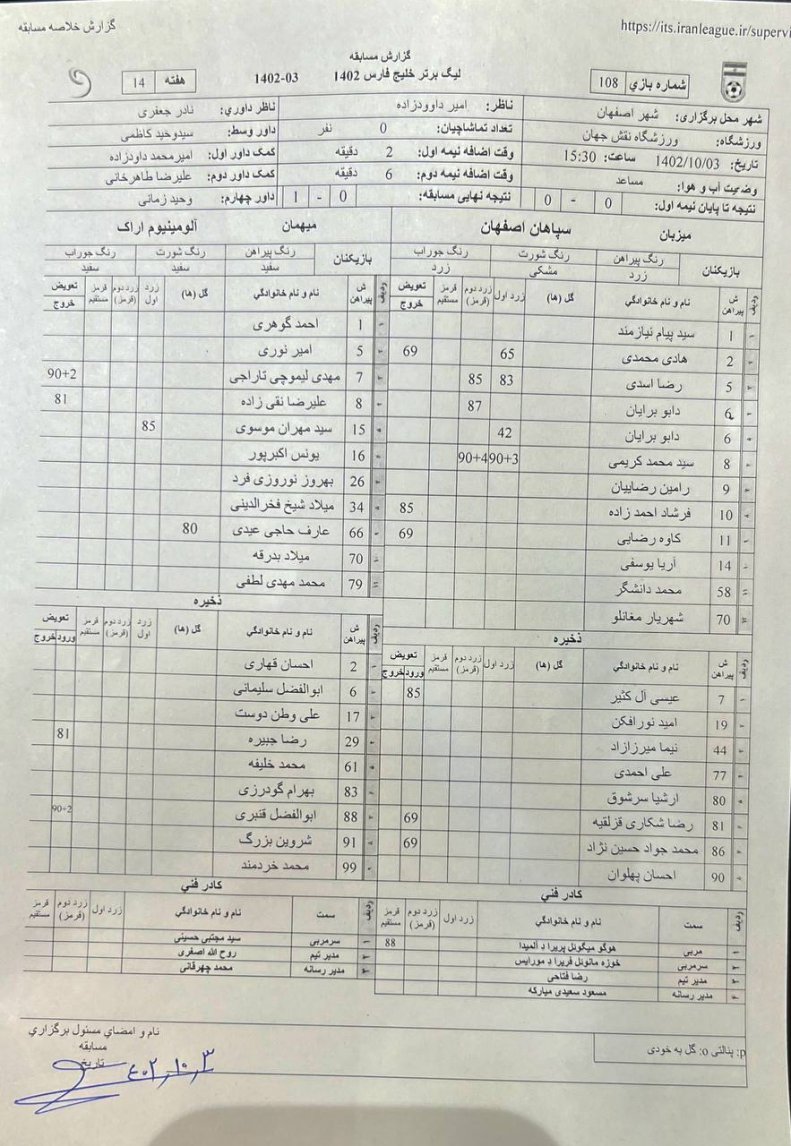 گزارش خلاصه مسابقه
https://its.iranleague.ir/supervi
گزارش مسابقه
لیگ برتر خلیج فارس 1402 1402-03
شماره بازي 108
هفته 14
شهر محل برگزاری: شهر اصفهان
ناظر: امیر داوودزاده
ناظر داوري: نادر جعفری
ورزشگاه: ورزشگاه نقش جهان
تعداد تماشاچیان: 0 نفر
داور وسط: سیدوحید کاظمی
تاریخ: 1402/10/03 ساعت: 15:30
وقت اضافه نیمه اول: 2 دقیقه
کمک داور اول: امیرمحمد داودزاده
وضعیت آب و هوا: مساعد
وقت اضافه نیمه دوم: 6 دقیقه
کمک داور دوم: علیرضا طاهرخانی
نتیجه تا پایان نیمه اول: 0 - 0
نتیجه نهایی مسابقه: 0 - 1
داور چهارم: وحید زمانی
میزبان سپاهان اصفهان
بازیکنان رنگ پیراهن رنگ شورت رنگ جوراب
زرد مشکی زرد
ردیف ش پیراهن نام و نام خانوادگي گل (ها) زرد اول زرد دوم (قرمز) قرمز مستقیم تعویض خروج
1 سید پیام نیازمند
2 هادی محمدی 65 69
5 رضا اسدی 83 85
6 دابو برایان 87
6 دابو برایان 42
8 سید محمد کریمی 90+3 90+4
9 رامین رضاییان
10 فرشاد احمد زاده 85
11 کاوه رضایی 69
14 آریا یوسفی
58 محمد دانشگر
70 شهریار مغانلو
ذخیره
ردیف ش پیراهن نام و نام خانوادگي گل (ها) زرد اول زرد دوم (قرمز) قرمز مستقیم تعویض ورود خروج
7 عیسی آل کثیر 85
19 امید نورافکن
44 نیما میرزازاد
77 علی احمدی
80 ارشیا سرشوق
81 رضا شکاری قزلقیه 69
86 محمد جواد حسین نژاد 69
90 احسان پهلوان
کادر فني
ردیف سمت نام و نام خانوادگي زرد اول زرد دوم (قرمز) قرمز مستقیم
۱ مربی هوگو میگوئل پریرا د آلمیدا 88
۲ سرمربی خوزه مانوئل فریرا د مورایس
۳ مدیر تیم رضا فتاحی
۴ مدیر رسانه مسعود سعیدی مبارکه
میهمان آلومینیوم اراک
بازیکنان رنگ پیراهن رنگ شورت رنگ جوراب
سفید سفید سفید
ردیف ش پیراهن نام و نام خانوادگي گل (ها) زرد اول زرد دوم (قرمز) قرمز مستقیم تعویض خروج
1 احمد گوهری
5 امیر نوری
7 مهدی لیموچی تاراجی 90+2
8 علیرضا نقی زاده 81
15 سید مهران موسوی 85
16 یونس اکبرپور
26 بهروز نوروزی فرد
34 میلاد شیخ فخرالدینی
66 عارف حاجی عیدی 80
70 میلاد بدرقه
79 محمد مهدی لطفی
ذخیره
ردیف ش پیراهن نام و نام خانوادگي گل (ها) زرد اول زرد دوم (قرمز) قرمز مستقیم تعویض ورود خروج
2 احسان قهاری
6 ابوالفضل سلیمانی
17 علی وطن دوست
29 رضا جبیره 81
61 محمد خلیفه
83 بهرام گودرزی
88 ابوالفضل قنبری 90+2
91 شروین بزرگ
99 محمد خردمند
کادر فني
ردیف سمت نام و نام خانوادگي زرد اول زرد دوم (قرمز) قرمز مستقیم
۱ سرمربی سید مجتبی حسینی
۲ مدیر تیم روح الله اصغری
۳ مدیر رسانه محمد چهرقانی
p: پنالتی o: گل به خودی
نام و امضاي مسئول برگزاري
مسابقه
تاریخ
۴۰۲,۱۰,۳